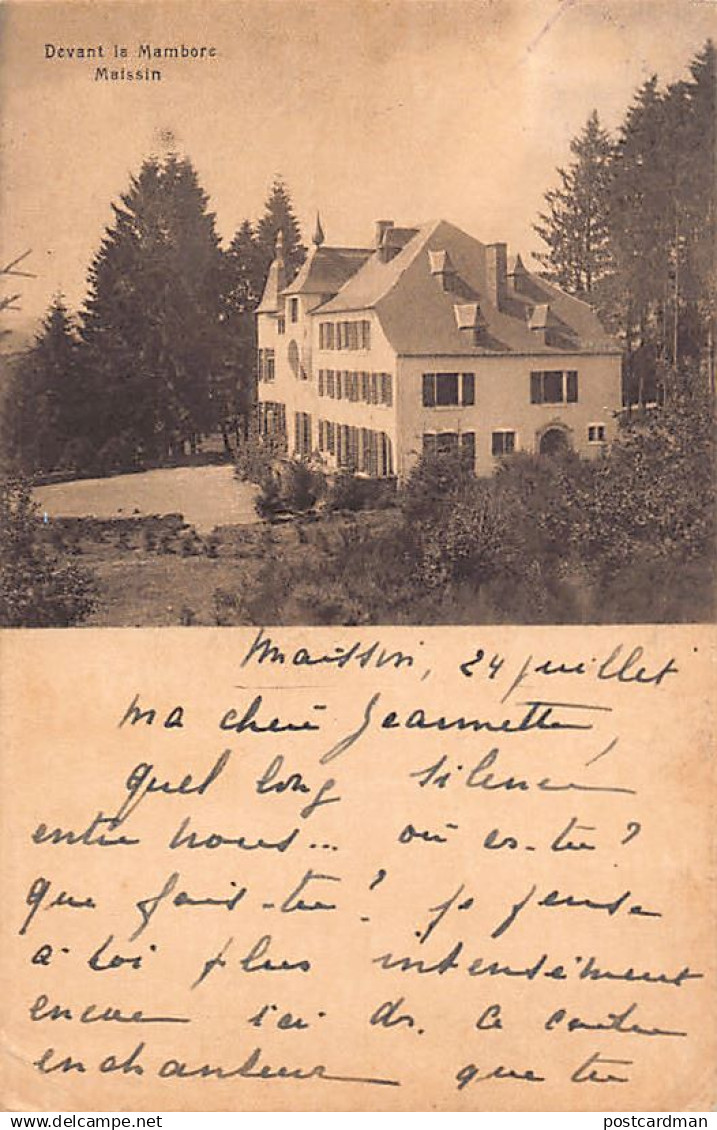 Devant la Mambore
Maissin
Maissin, 24 juillet
Ma chère Jeannette,
quel long silence
entre nous... où es-tu?
que fais-tu? je pense
à toi plus intensément
encore ici ds. ce centre
enchanteur que tu
postcardman